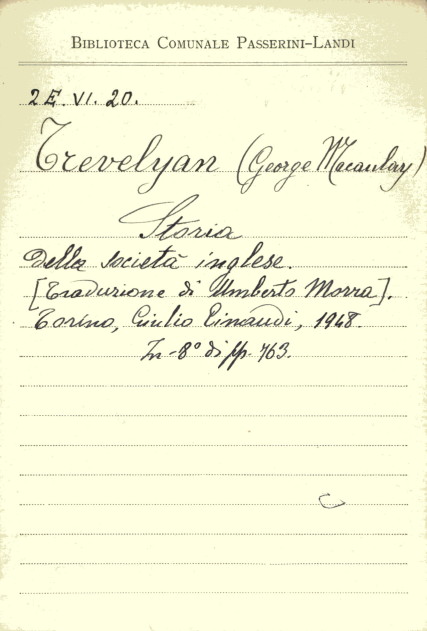 BIBLIOTECA COMUNALE PASSERINI-LANDI
2 E. VI. 20.
Trevelyan (George Macaulay)
Storia
della società inglese.
[Traduzione di Umberto Morra].
Torino, Giulio Einaudi, 1948.
In-8° di pp. 763.